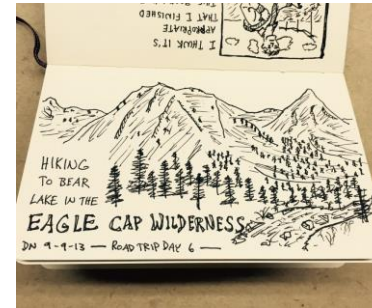 I THINK IT'S
APPROPRIATE
THAT I FINISHED
HIKING
TO BEAR
LAKE IN THE
EAGLE CAP WILDERNESS
DN 9-9-13 — ROAD TRIP DAY 6 —